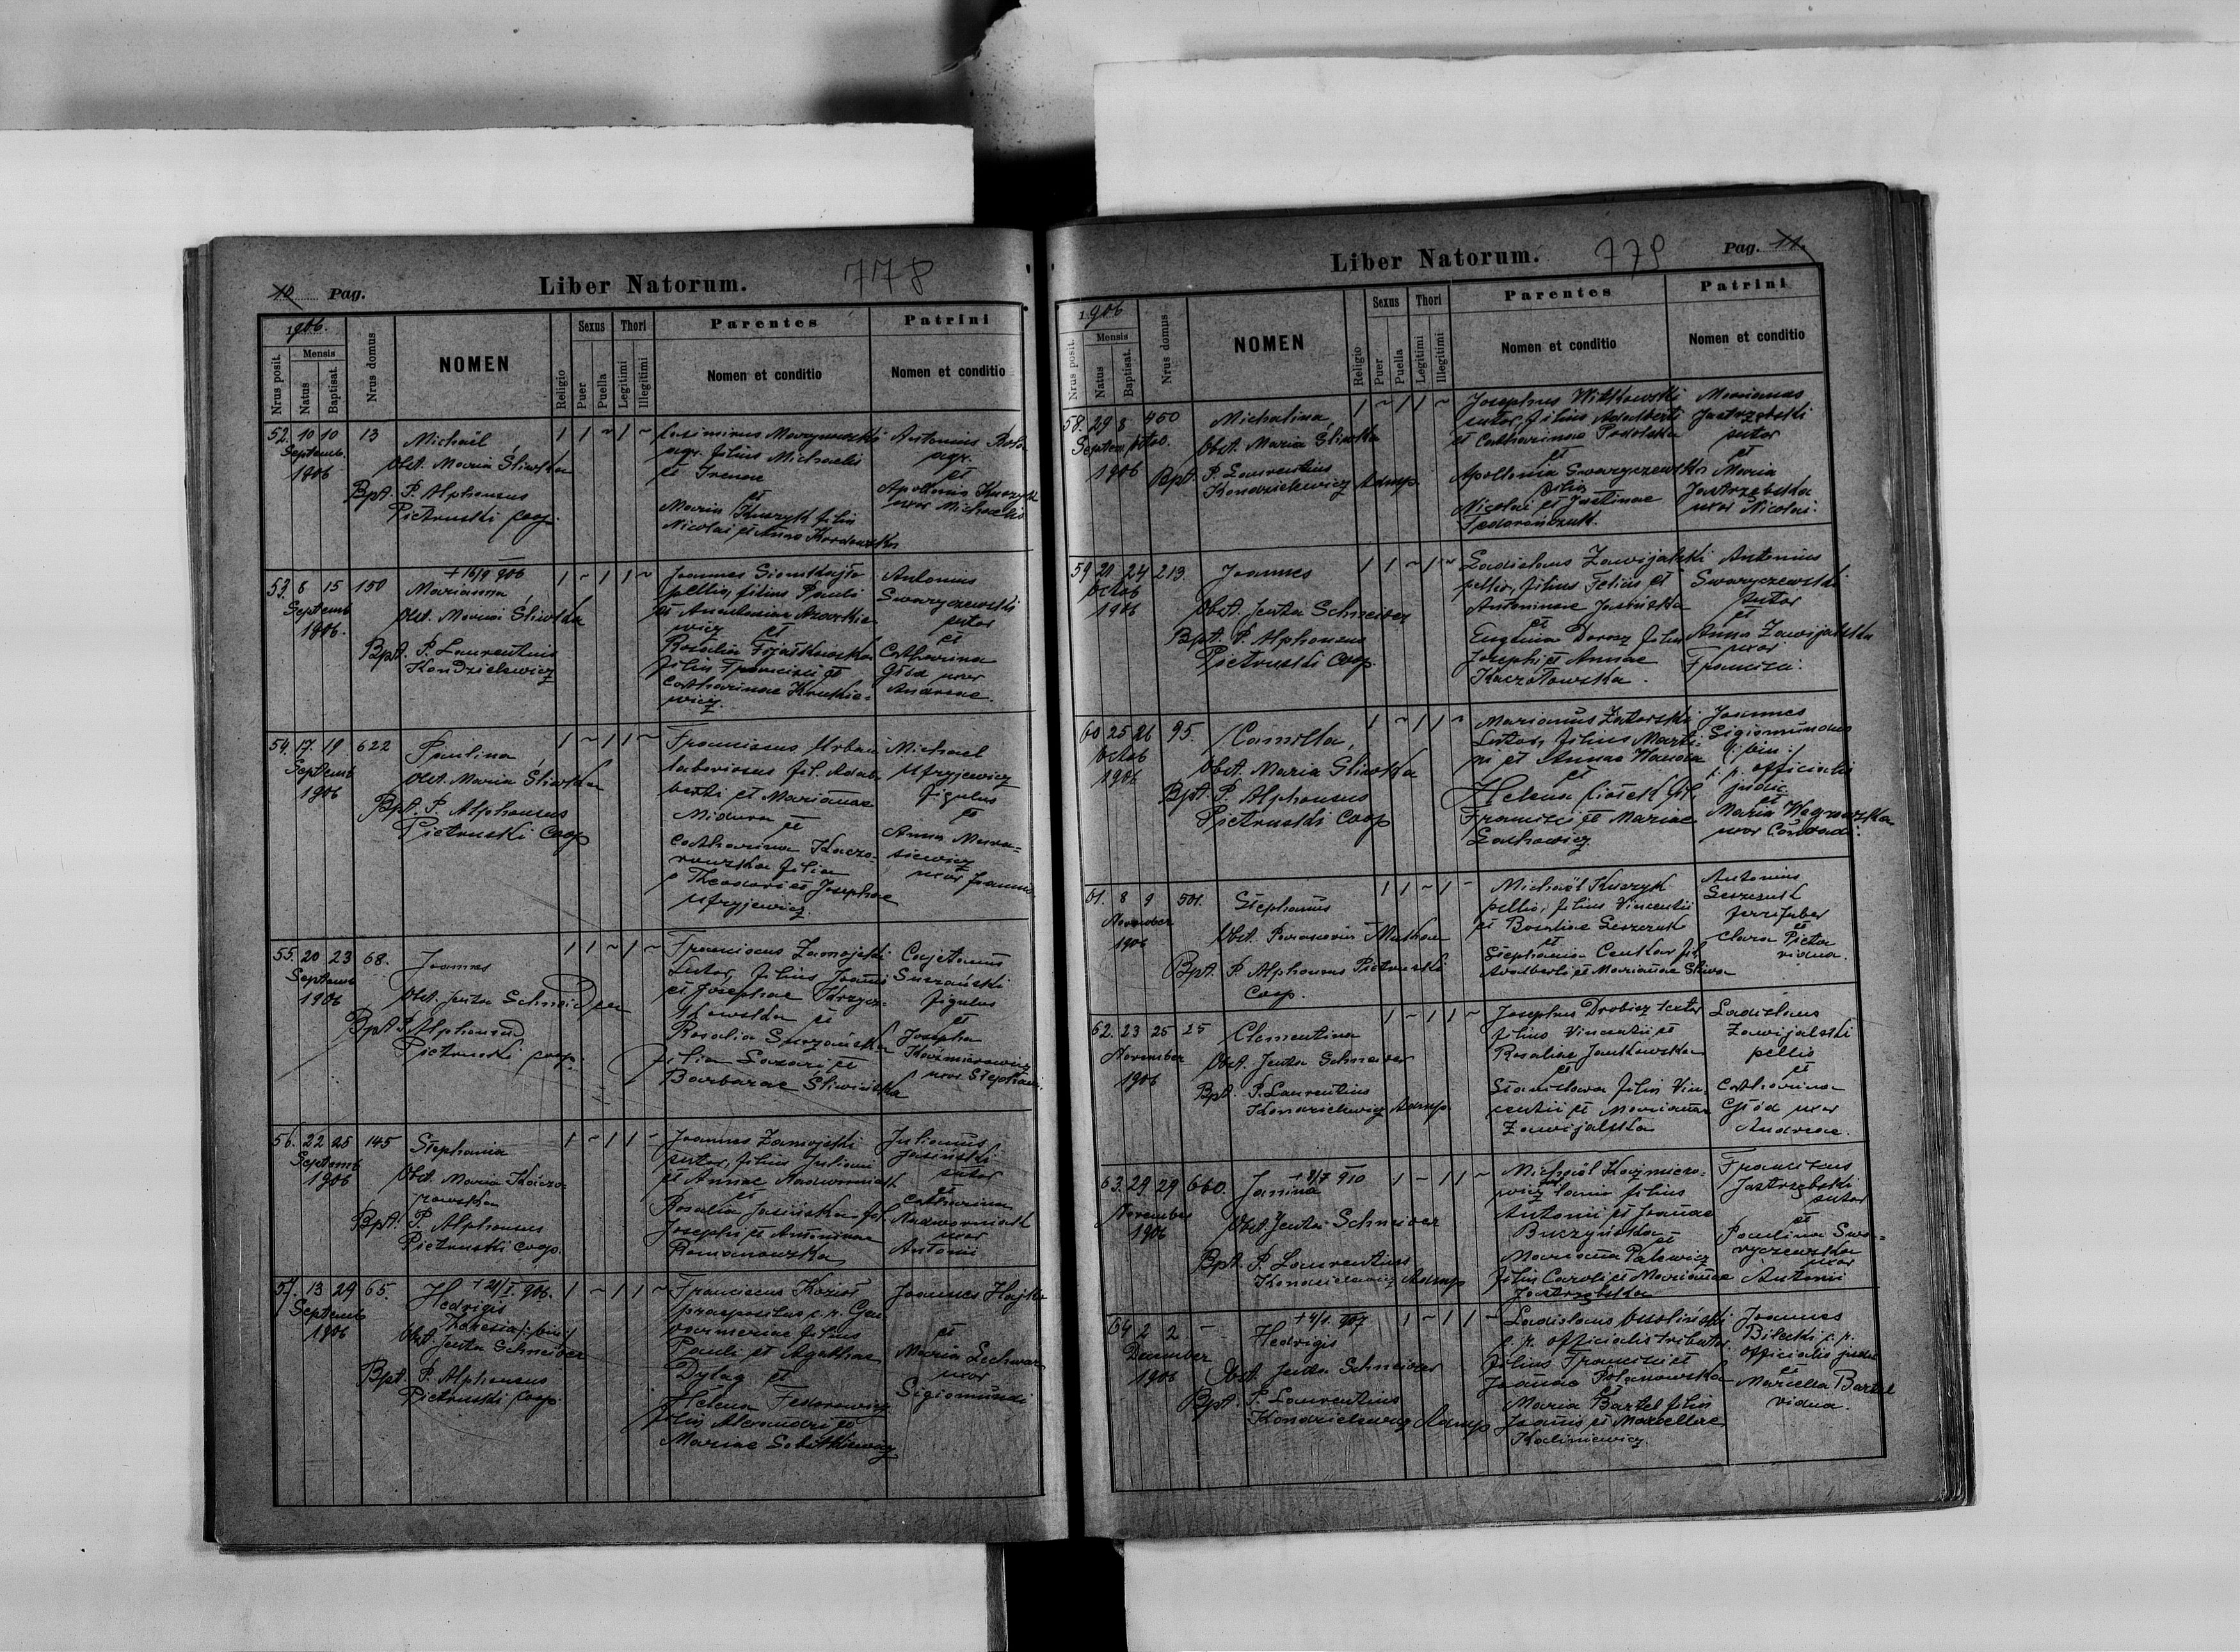 10 Pag.
Liber Natorum.
778
1906.
Nrus posit.
Mensis
Natus
Baptisat.
Nrus domus
NOMEN
Religio
Sexus
Puer
Puella
Thori
Legitimi
Illegitimi
Parentes
Nomen et conditio
Patrini
Nomen et conditio
52. 10 10 13
Septemb.
1906
Michaël
Obst. Maria Śliwska
Bpt. P. Alphonsus
Pietruski coop.
1 1 ~ 1 ~
Casimirus
agr. filius Michaelis
et Irenae
et
Maria Kuczyk filia
Nicolai et Annae
Antonius
agr.
et
Apollonia Kuczyk
uxor Michaelis
53. 8 15 150
Septemb
1906.
+ 16/9 906
Marianna
Obst. Maria Śliwska
Bpt. P. Laurentius
Kondzielewicz
1 ~ 1 1 ~
Joannes
pellio, filius Pauli
et Anastasiae
wicz et
Rosalia
filia Francisci et
Catharinae Krukie-
wicz.
Antonius
Swaryczewski
sutor
et
Catharina
Głód uxor
Andreae.
54. 17. 19 622
Septemb
1906
Paulina
Obst. Maria Śliwska
Bpt. P. Alphonsus
Pietruski Coop
1 ~ 1 1 ~
Franciscus Urban
laboriosus fil. Adal-
berti et Mariannae
Midura et
Catharina Kaczo-
rowska filia
Theodori et Josephae
Ufryjewicz.
Michael
Ufryjewicz
figulus
et
Anna
siewicz
uxor Joannis
55. 20 23 68.
Septemb
1906
Joannes
Obst. Jenta Schneider
Bpt P. Alphonsus
Pietruski coop.
1 1 ~ 1 ~
Franciscus Zamojski
sutor, filius Joannis
et Josephae
kowska et
Rosalia
filia Lazari et
Barbarae Śliwińska
Cajetanus
figulus
et
Josepha
Kaźmierowicz
uxor Stephani.
56. 22 25 145
Septemb
1906
Stephania
Obst. Maria Kaczo-
rowska
Bpt. P. Alphonsus
Pietruski coop.
1 ~ 1 1 ~
Joannes Zamojski
sutor, filius Juliani
et Annae Nadworniak
et
Rosalia Jasińska fil.
Josephi et Antoninae
Romanowska
Julianus
Jasiński
sutor
et
Catharina
Nadworniak
uxor
Antonii
57. 13 29 65.
Septemb
1906
Hedvigis
Obst. Jenta Schneider
Bpt. P. Alphonsus
Pietruski coop.
1 ~ 1 1 ~
Franciscus Kozioł
praepositus c. r. Gen-
darmeriae filius
Pauli et Agathae
Dyląg et
Helena Fedorowicz
filia Alexandri et
Mariae
Joannes Hajto
et
Maria Lechwar
uxor
Sigismundi
Liber Natorum.
779
Pag. 11.
1906
Nrus posit.
Mensis
Natus
Baptisat.
Nrus domus
NOMEN
Religio
Sexus
Puer
Puella
Thori
Legitimi
Illegitimi
Parentes
Nomen et conditio
Patrini
Nomen et conditio
58. 29 8 450
Septem
1906
Michalina
Obst. Maria Śliwska
Bpt. P. Laurentius
Kondzielewicz Admp.
1 ~ 1 1 ~
Josephus Witkowski
sutor, filius Adalberti
et Catharinae Podolska
et
Apollonia Swaryczewska
filia
Nicolai et Justinae
Marianus
Jastrzębski
sutor
et
Maria
Jastrzębska
uxor Nicolai.
59 20 24 213.
Octob
1906
Joannes
Obst. Jenta Schneider
Bpt. P. Alphonsus
Pietruski Coop.
1 1 ~ 1 ~
Ladislaus Zawijalski
pellio, filius Felicis et
Antoninae Jasińska
et
Eugenia Dorosz filia
Josephi et Annae
Antonius
Swaryczewski
sutor
et
Anna Zawijalska
uxor
Francisci.
60 25 26 95.
Octob
1906
Camilla,
Obst. Maria Śliwska
Bpt. P. Alphonsus
Pietruski Coop
1 ~ 1 1 ~
Marianus Zatorski
sutor, filius Marti-
ni et Annae
et
Helena fil.
Francisci et Mariae
Lachowicz
Joannes
Sigismundus
/: bin :/
c. r. officialis
judic.
et
Maria
uxor Conradi.
61. 8 9 501.
November
1906
Stephanus
Obst. Parascevia
Bpt. P. Alphonsus Pietruski
Coop.
1 1 ~ 1 ~
Michaël Kuczyk
pellio, filius Vincentii
et Rosaliae Leszczuk
et
Stephania fil.
Adalberti et Mariannae Śliwa
Antonius
Leszczuk
ferrifaber
et
Clara
vidua.
62. 23 25 25
November
1906
Clementina
Obst. Jenta Schneider
Bpt. P. Laurentius
Kondzielewicz Admp.
1 ~ 1 1 ~
Josephus Drobicz textor
filius Vincentii et
Rosaliae Jankowska
et
Stanislava filia Vin-
centii et Mariannae
Zawijalska
Ladislaus
Zawijalski
pellio
et
Catharina
Głód uxor
Andreae.
63. 29 29 660.
November
1906
+ 8/7 910
Janina
Obst. Jenta Schneider
Bpt. P. Laurentius
Kondzielewicz Admp
1 ~ 1 1 ~
Michaël Kaźmiero-
wicz lanio filius
Antonii et Joannae
Buczyńska
et
Marianna Palewicz
filia Caroli et Mariannae
Jastrzębska
Franciscus
Jastrzębski
sutor
et
Paulina Swa-
ryczewska
uxor
Antonii
64 2 2 –
December
1906
Hedvigis
Obst. Jenta Schneider
Bpt. P. Laurentius
Kondzielewicz Admp
1 ~ 1 1 ~
Ladislaus Ossoliński
c. r. officialis tributor.
filius Francisci et
Joannae
et
Maria Bartel filia
Joannis et Marcellae
Kaliniewicz.
Joannes
Bilecki c. r.
officialis judic
et
Marcella Bartel
vidua.